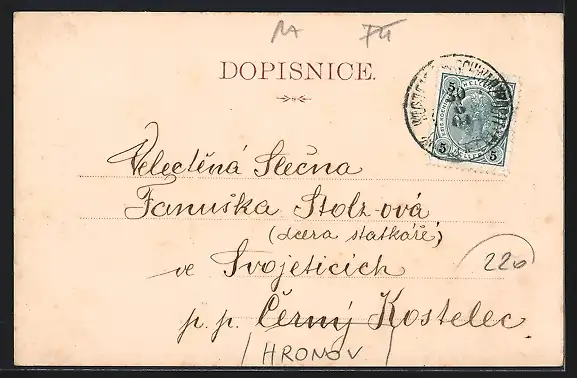 DOPISNICE.
Velectěná Slečna
Fanuška Stolz-ová
(dcera statkáře)
ve Svojeticích
220
p. p. Černý Kostelec
/HRONOV
5
5 5